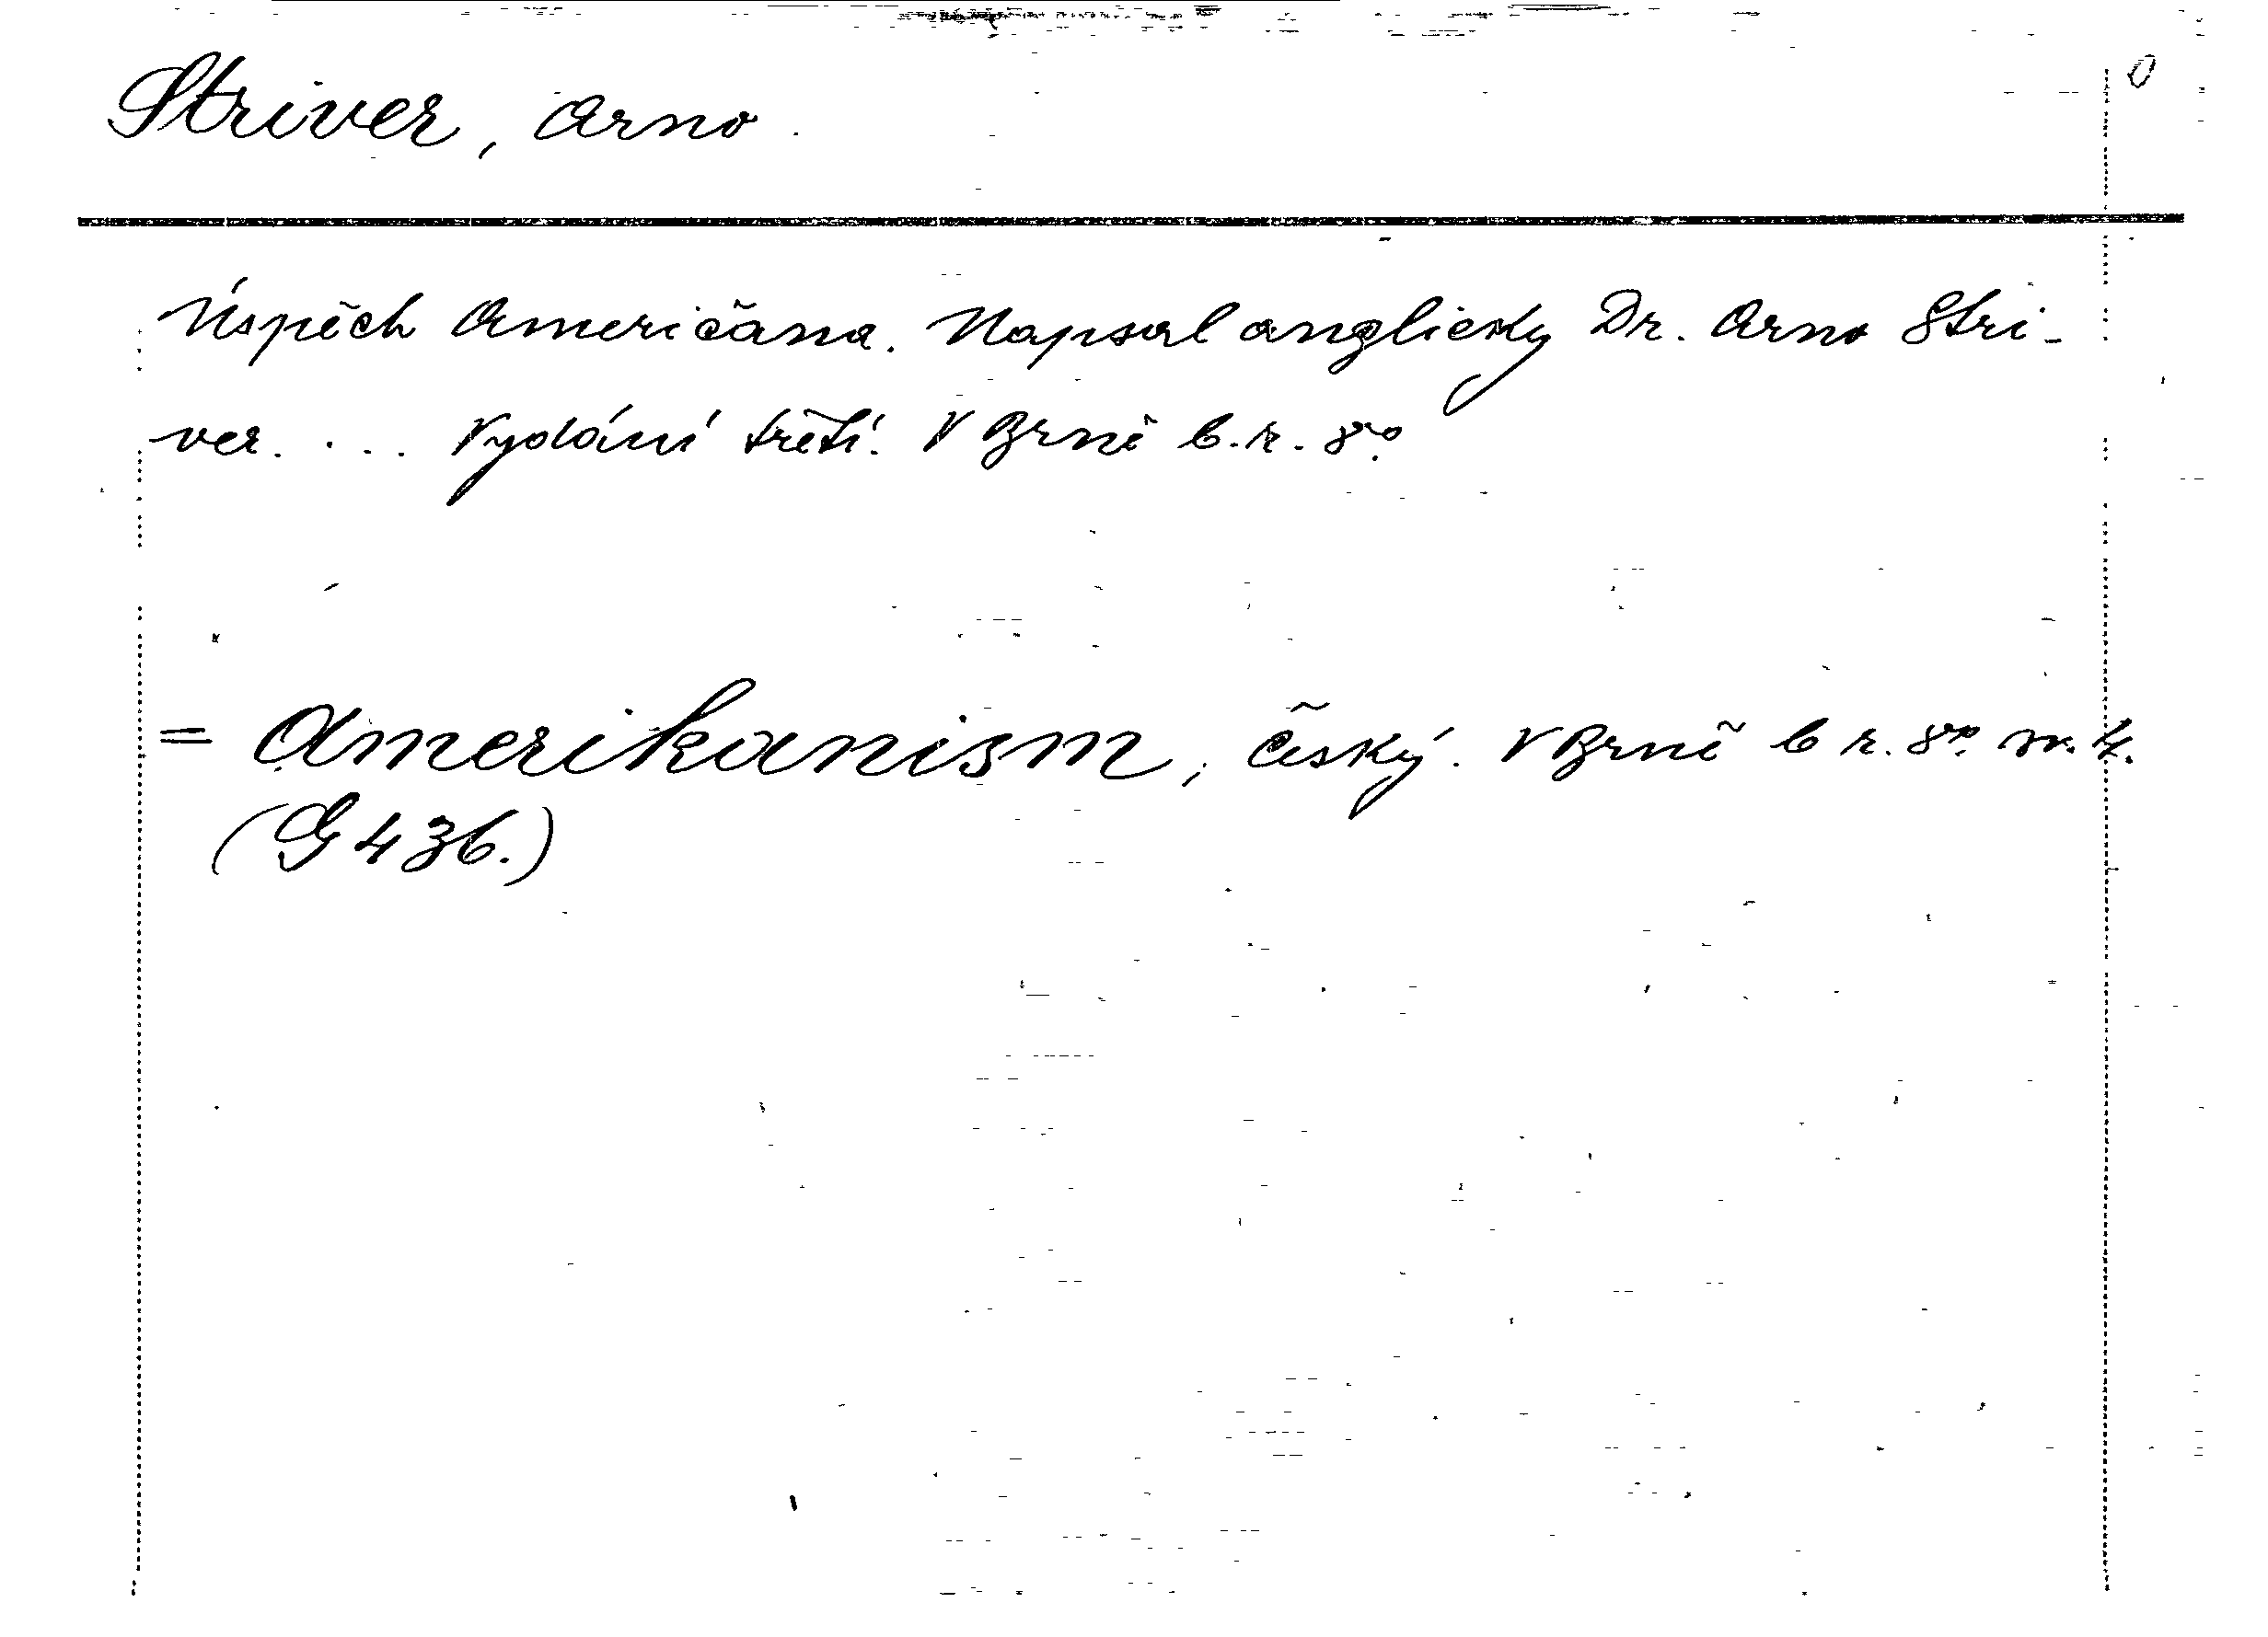 Striver, Arno. 0
Úspěch Američana. Napsal anglicky Dr. Arno Stri-
ver. ... Vydání třetí. V Brně b. r. 8°.
= Amerikanism, český. V Brně b r. 8°. sv. 4.
(G 436.)